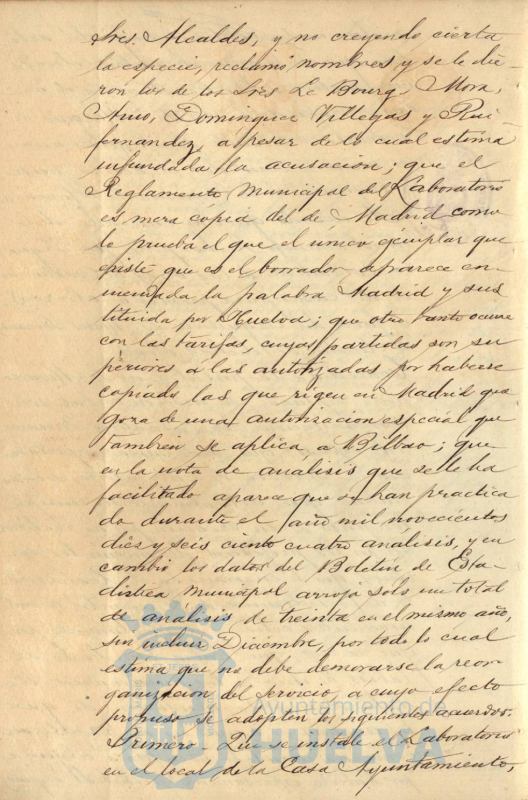 Sres. Alcaldes, y no creyendo cierta
la especie, reclamó nombres, y se le die-
ron los de los Sres Le Bourg, Mora,
Amo, Dominguez Villegas y Rui-
fernandez, a pesar de lo cual estima
infundada la acusación; que el
Reglamento Municipal del Laboratorio
es mera copia del de Madrid como
lo prueba el que el único ejemplar que
existe que es el borrador, aparece en-
mendada la palabra Madrid y sus
tituida por Huelva; que otro tanto ocurre
con las tarifas, cuyas partidas son su
periores a las autorizadas por haberse
copiado las que rigen en Madrid que
goza de una autorización especial que
tambien se aplica a Bilbao; que
en la nota de análisis que se le ha
facilitado aparece que se han practica
do durante el año mil novecientos
diéz y seis ciento cuatro análisis, y en
cambio los datos del Boletín de Esta-
distica Municipal arroja solo un total
de análisis de treinta en el mismo año,
sin incluir Diciembre, por todo lo cual
estima que no debe demorarse la reor-
ganización del servicio, a cuyo efecto
propuso se adopten los siguientes acuerdos:
Primero - Que se instale el Laboratorio
en el local de la Casa Ayuntamiento,
Ayuntamiento de
HUELVA